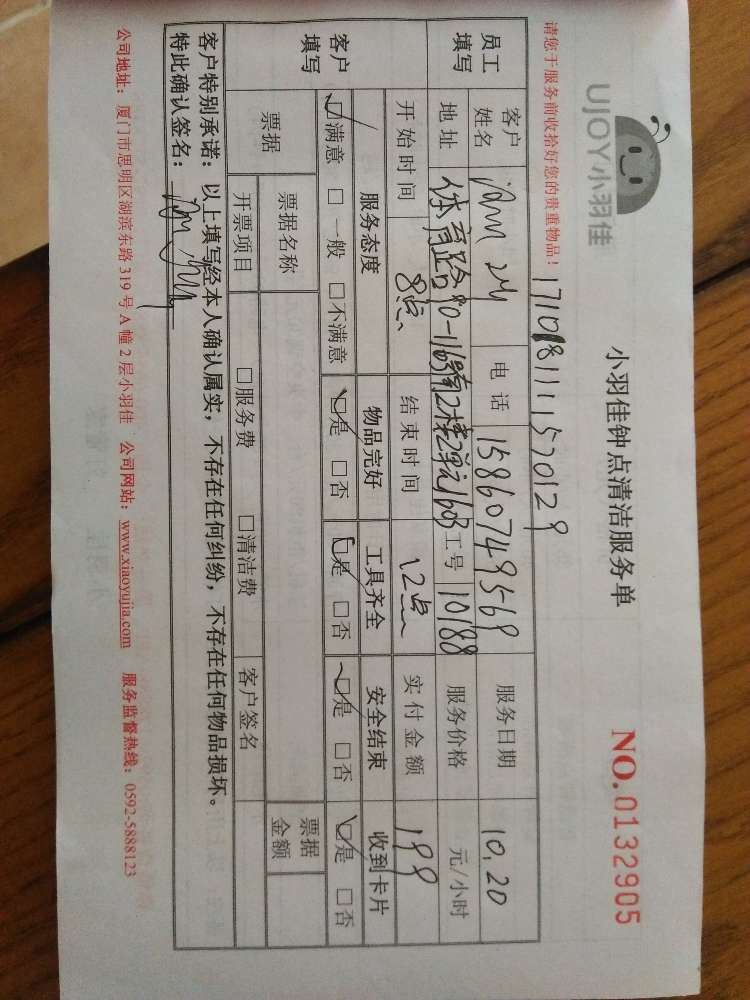 UJOY小羽佳
小羽佳钟点清洁服务单
NO.0132905
请您于服务前收拾好您的贵重物品!
1710181111570129
员工填写 客户姓名 电话 15860749569 服务日期 10.20
地址 体育路90-116号南2楼2单元1603 工号 10188 服务价格 元/小时
开始时间 8点 结束时间 12点 实付金额 199
客户填写 服务态度 物品完好 工具齐全 安全结束 收到卡片
☑满意 □一般 □不满意 ☑是 □否 ☑是 □否 ☑是 □否 ☑是 □否
票据 票据名称 票据金额
开票项目 □服务费 □清洁费 客户签名
客户特别承诺:以上填写经本人确认属实,不存在任何纠纷,不存在任何物品损坏。
特此确认签名:
公司地址:厦门市思明区湖滨东路319号A幢2层小羽佳 公司网站:www.xiaoyujia.com 服务监督热线:0592-5888123